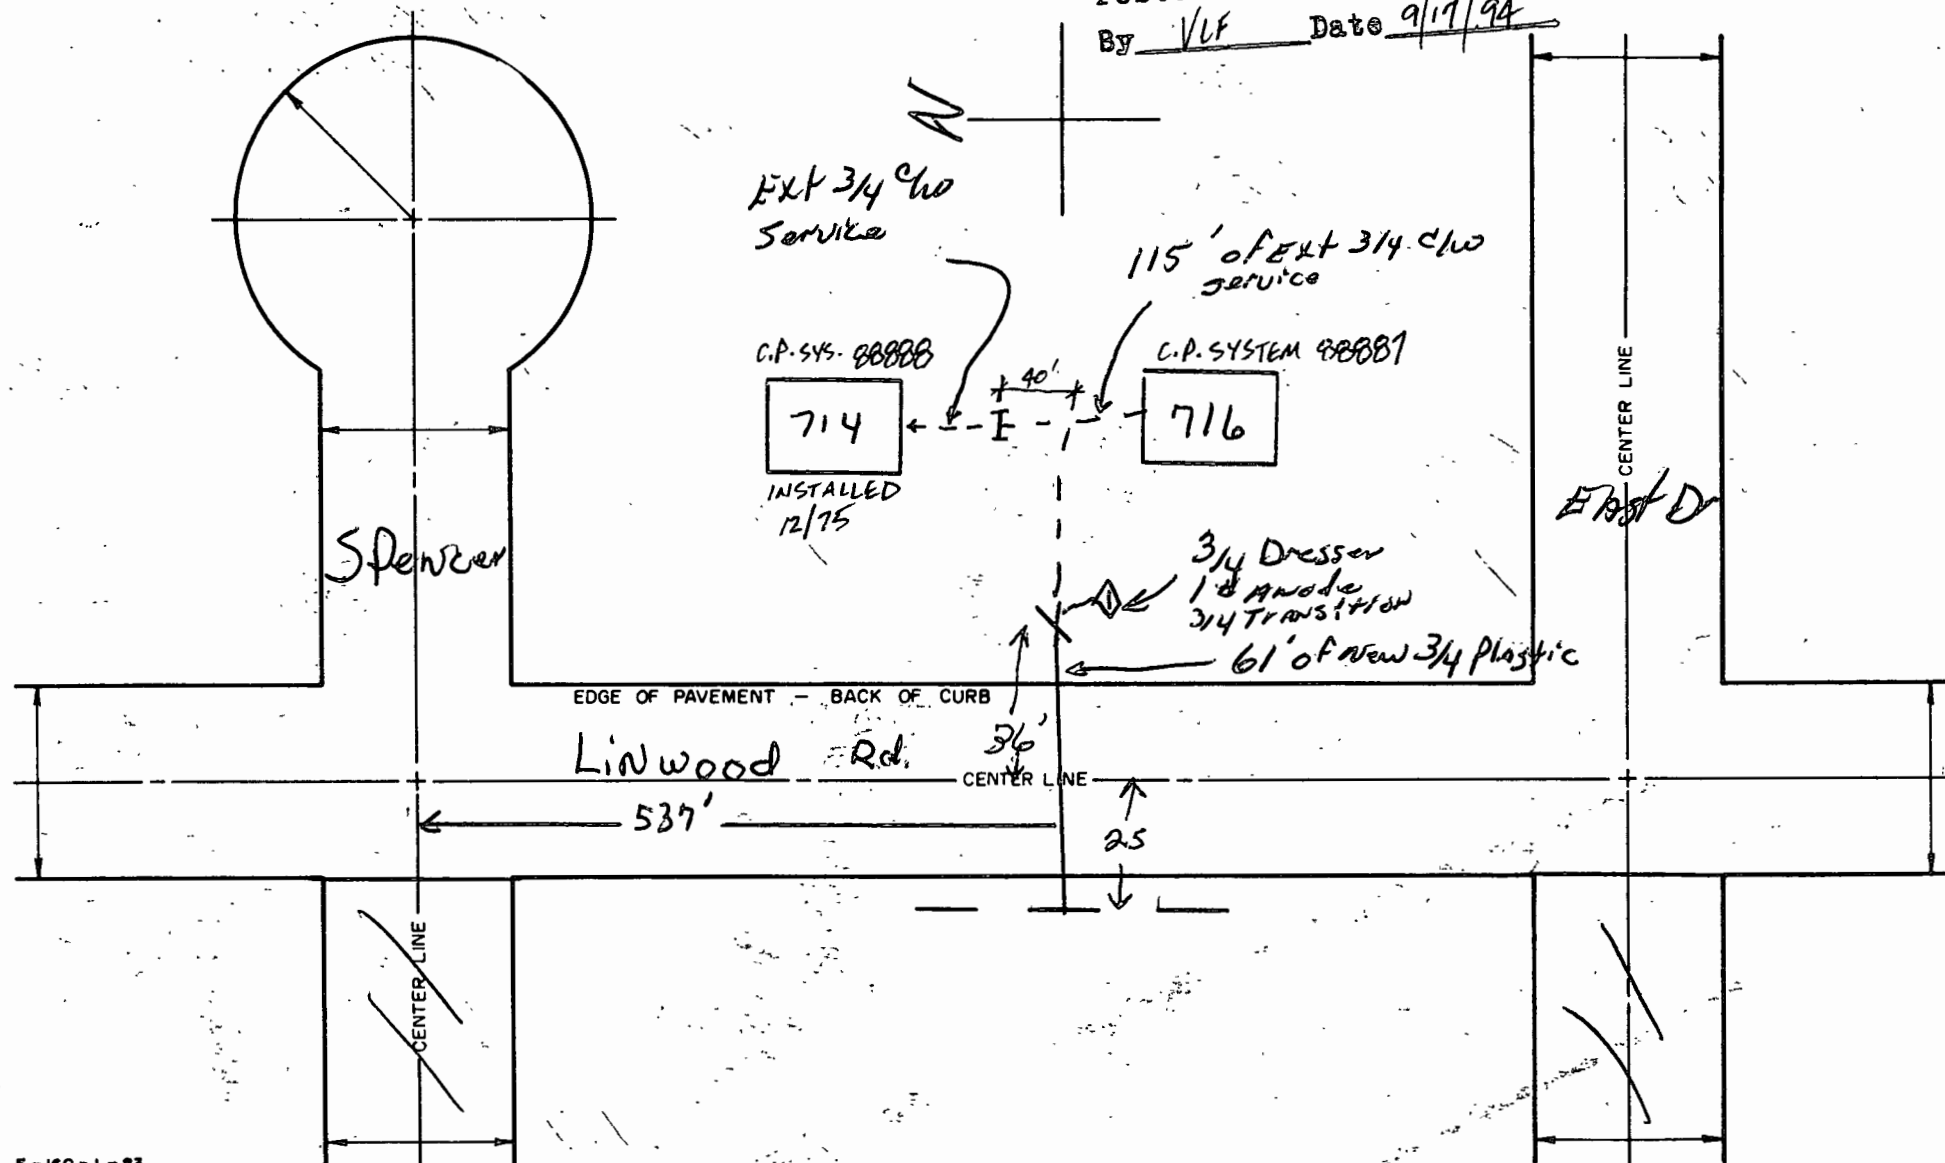 By VLF Date 9/17/94
N
Ext 3/4 c/w
Service
115' of Ext 3/4 c/w
service
C.P. SYS. 88888
C.P. SYSTEM 88887
40'
714
716
I
INSTALLED
12/75
CENTER LINE
East Dr
Spencer
3/4 Dresser
1# Anode
3/4 Transition
61' of New 3/4 Plastic
EDGE OF PAVEMENT - BACK OF CURB
36'
Linwood Rd.
CENTER LINE
537'
25
CENTER LINE